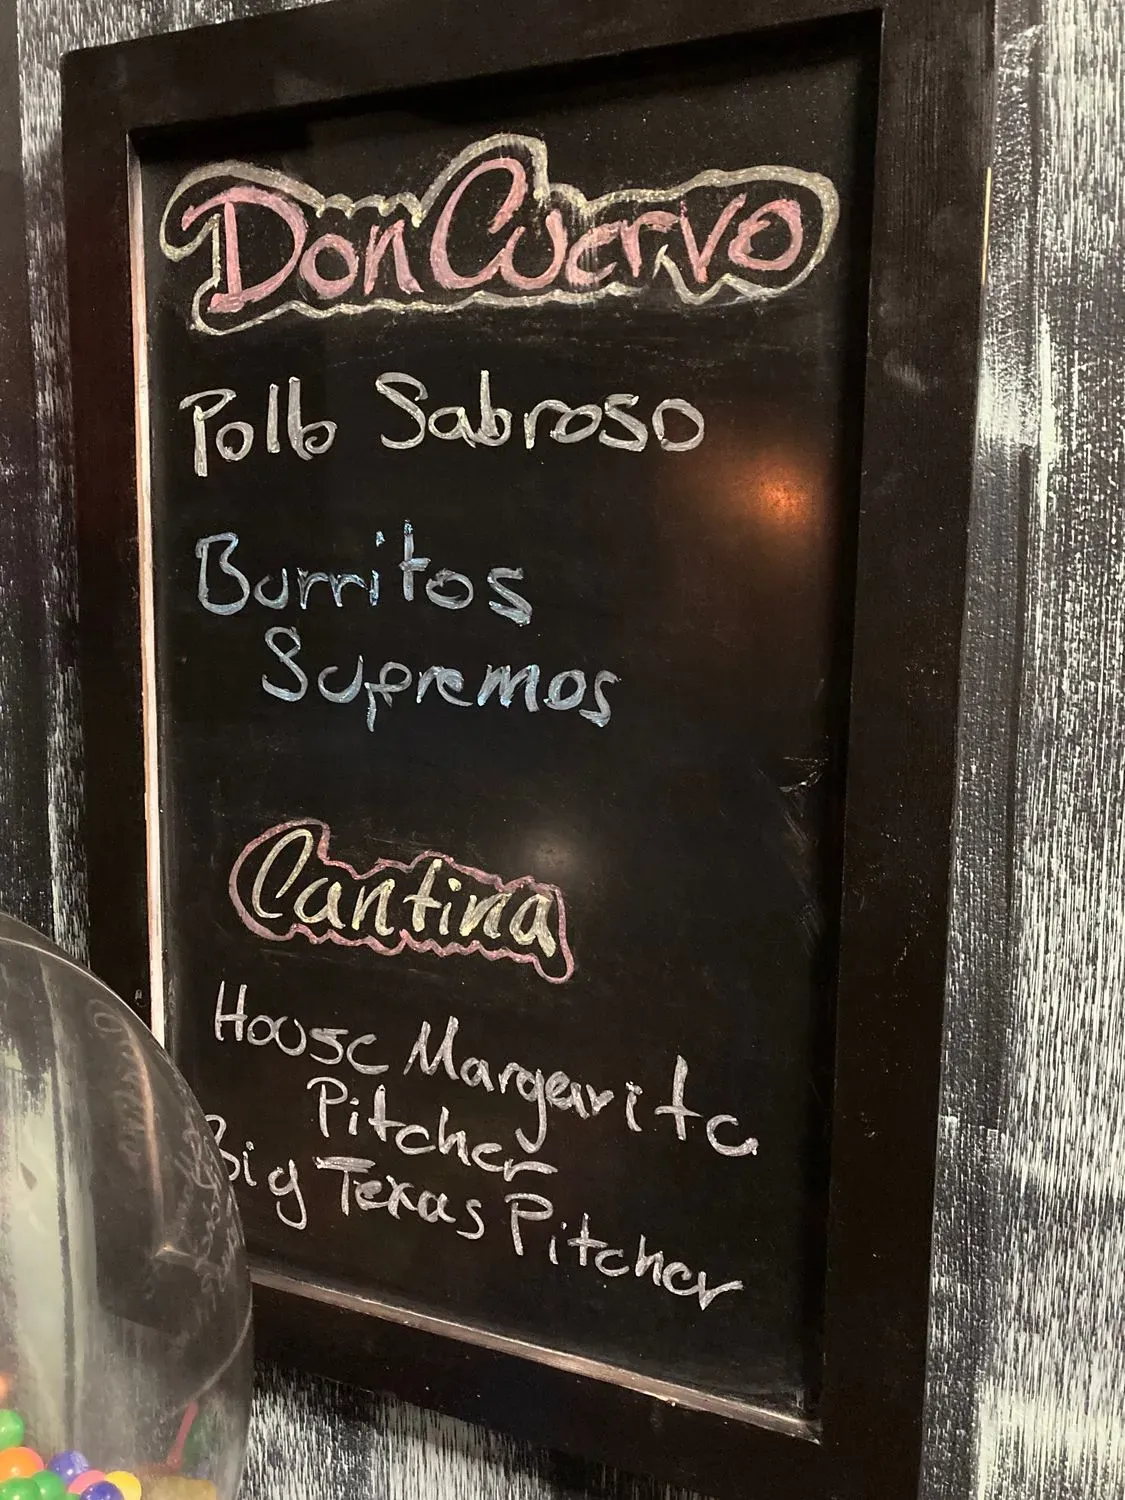 Don Cuervo
Pollo Sabroso
Burritos
Supremos
Cantina
House Margarita
Pitcher
Big Texas Pitcher